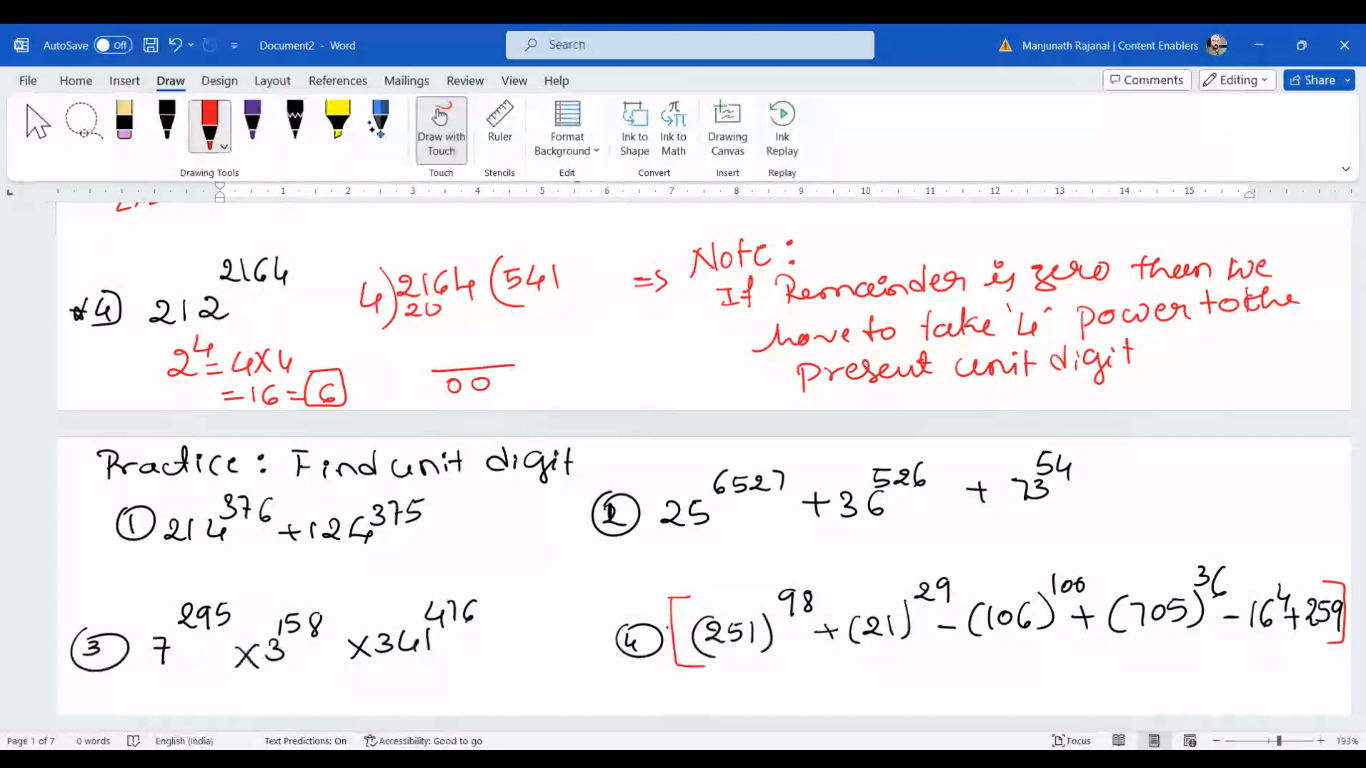 AutoSave Off Document2 - Word Search Manjunath Rajanal | Content Enablers
File Home Insert Draw Design Layout References Mailings Review View Help Comments Editing Share
Draw with Touch Ruler Format Background Ink to Shape Ink to Math Drawing Canvas Ink Replay
Drawing Tools Touch Stencils Edit Convert Insert Replay
1 2 3 4 5 6 7 8 9 10 11 12 13 14 15
*④ 212^2164
2^4 = 4×4
= 16 = 6
4) 2164 (541
20
00
⇒ Note:
If Remainder is zero then we
have to take '4' power to the
present unit digit
Practice: Find unit digit
① 214^376 + 124^375
② 25^6527 + 36^526 + 73^54
③ 7^295 × 3^158 × 341^476
④ [(251)^98 + (21)^29 - (106)^100 + (705)^36 - 16^4 + 259]
Page 1 of 7 0 words English (India) Text Predictions: On Accessibility: Good to go Focus 193%